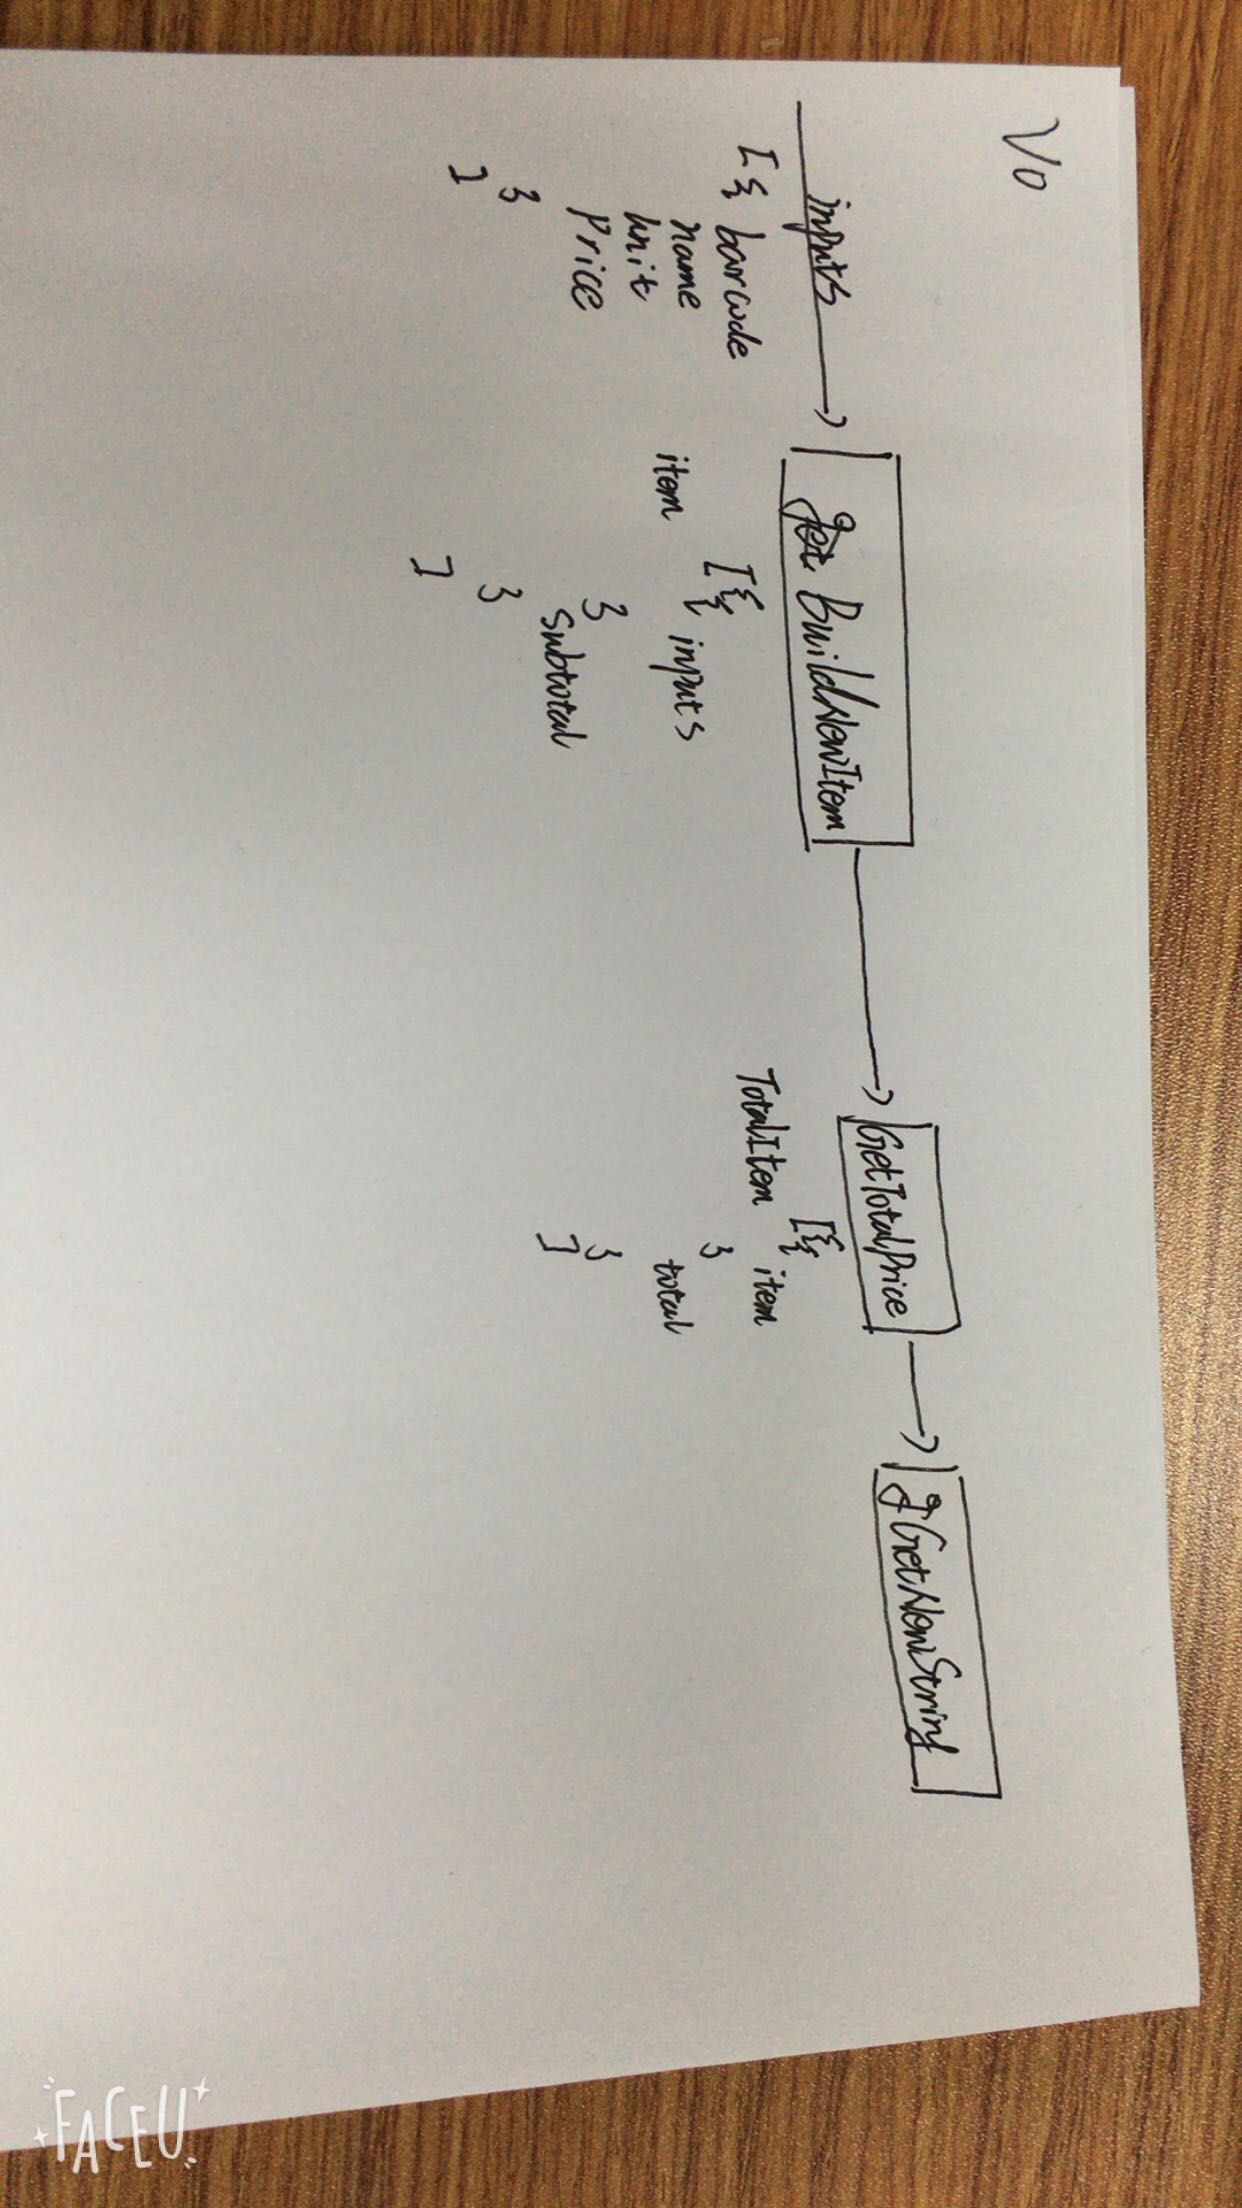 V0
inputs
[{ barcode
name
unit
price
}
]
BuildNewItem
item [{{ inputs
}
subtotal
}
]
GetTotalPrice
TotalItem [{{ item
}
total
}
]
GetNewString
FACEU